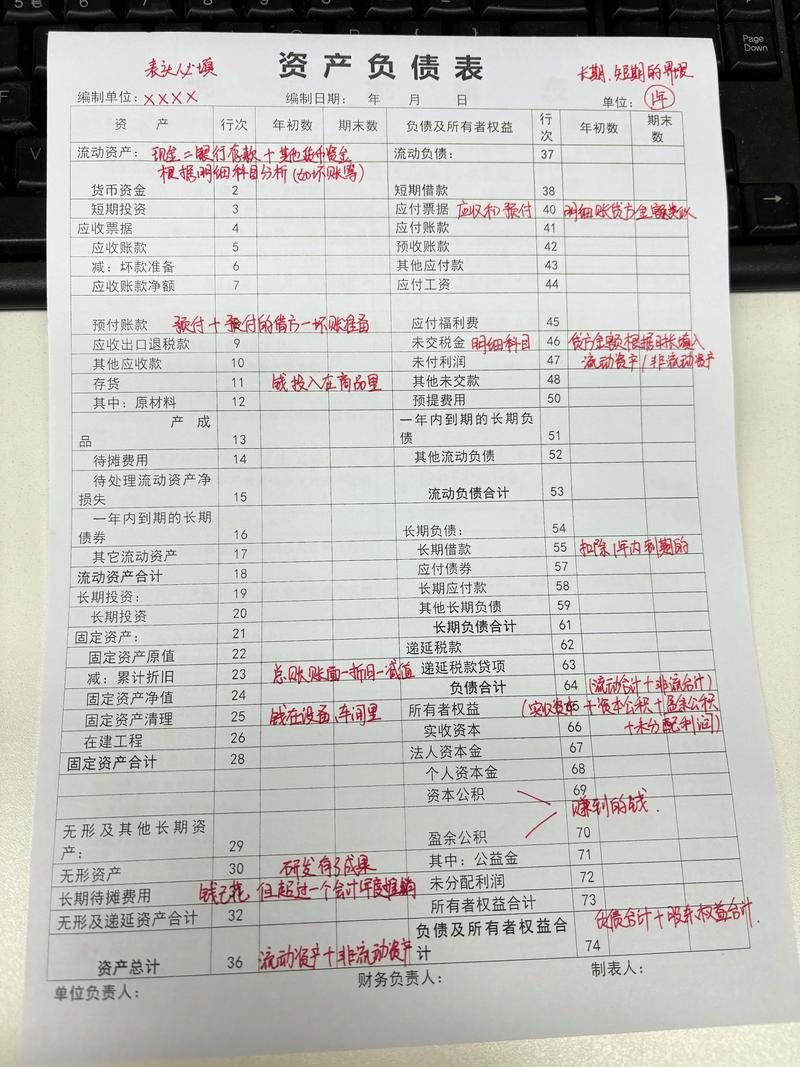 资产负债表
表头必填
长期、短期的界限
编制单位：XXXX 编制日期： 年 月 日 单位：1年
资 产 行次 年初数 期末数 负债及所有者权益 行次 年初数 期末数
流动资产： 现金=银行存款+其他货币资金 流动负债： 37
根据明细科目分析(如坏账等)
货币资金 2 短期借款 38
短期投资 3 应付票据 应收和预付 40 明细账贷方金额
应收票据 4 应付账款 41
应收账款 5 预收账款 42
减：坏款准备 6 其他应付款 43
应收账款净额 7 应付工资 44
预付账款 预付+预付的借方-坏账准备 应付福利费 45
应收出口退税款 9 未交税金 明细科目 46 贷方金额根据时长填入
其他应收款 10 未付利润 47 流动资产/非流动资产
存货 11 钱投入在商品里 其他未交款 48
其中：原材料 12 预提费用 50
产成品 13 一年内到期的长期负债 51
待摊费用 14 其他流动负债 52
待处理流动资产净损失 15 流动负债合计 53
一年内到期的长期债券 16 长期负债： 54
其它流动资产 17 长期借款 55 扣除1年内到期的
流动资产合计 18 应付债券 57
长期投资： 19 长期应付款 58
长期投资 20 其他长期负债 59
固定资产： 21 长期负债合计 61
固定资产原值 22 递延税款 62
减：累计折旧 23 总账账面-折旧-减值 递延税款贷项 63
固定资产净值 24 负债合计 64 (流动合计+非流合计)
固定资产清理 25 钱在设备、车间里 所有者权益 65 (实收资本+资本公积+盈余公积
在建工程 26 实收资本 66 +未分配利润)
固定资产合计 28 法人资本金 67
个人资本金 68
资本公积 69
赚到的钱.
无形及其他长期资产： 29 盈余公积 70
无形资产 30 研发有了成果 其中：公益金 71
长期待摊费用 钱已花 但超过一个会计年度摊销 未分配利润 72
无形及递延资产合计 32 所有者权益合计 73
资产总计 36 流动资产+非流动资产 负债及所有者权益合计 74 负债合计+股东权益合计.
单位负责人： 财务负责人： 制表人：
Page
Down